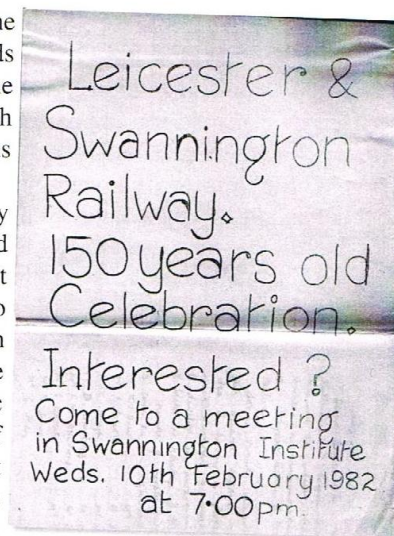 Leicester &
Swannington
Railway.
150 years old
Celebration.
Interested ?
Come to a meeting
in Swannington Institute
Weds. 10th February 1982
at 7.00pm.